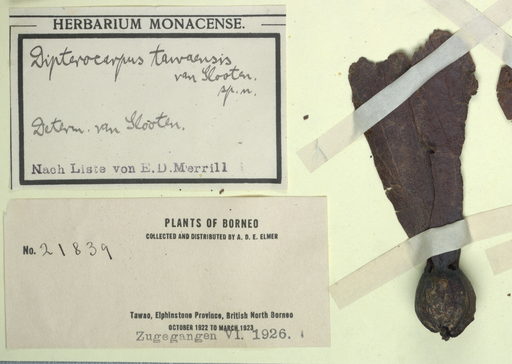 HERBARIUM MONACENSE.
Dipterocarpus tawaensis
van Slooten.
sp. n.
Determ. van Slooten.
Nach Liste von E.D.Merrill
PLANTS OF BORNEO
COLLECTED AND DISTRIBUTED BY A. D. E. ELMER
No. 21839
Tawao, Elphinstone Province, British North Borneo
OCTOBER 1922 TO MARCH 1923
Zugegangen VI. 1926.